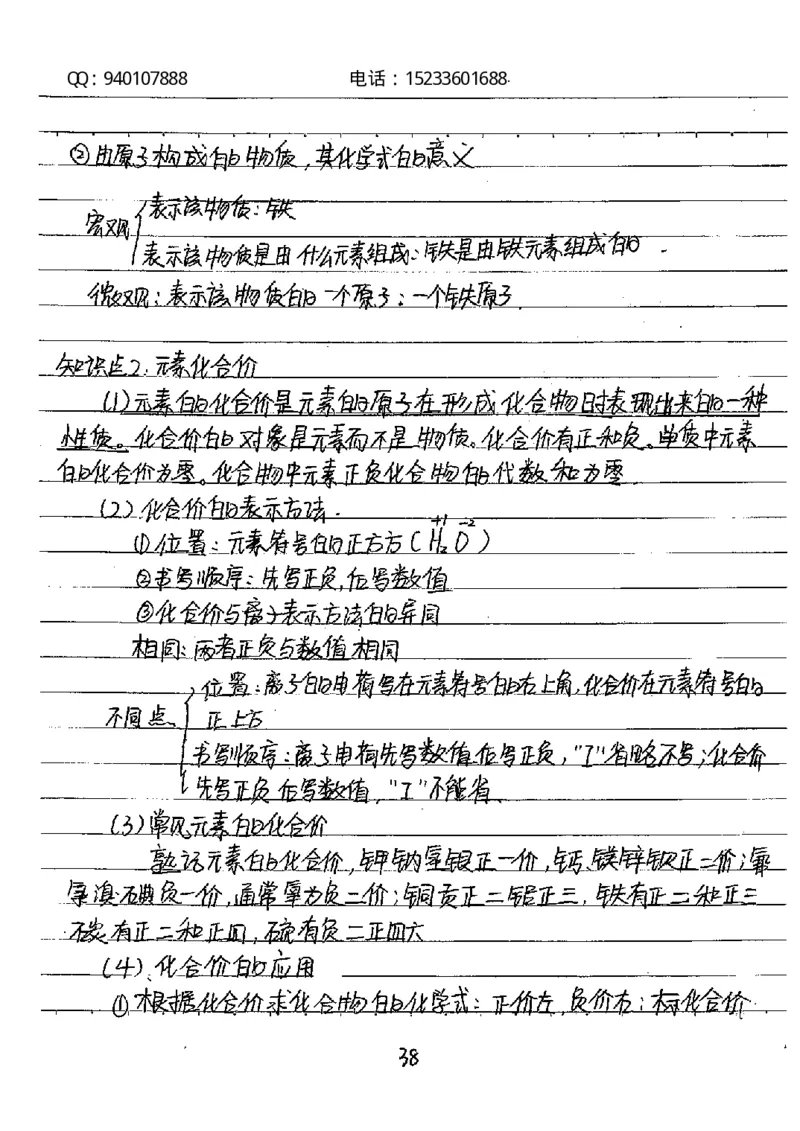 QQ：940107888 电话：15233601688
②由原子构成的物质，其化学式的意义
宏观 表示该物质：铁
表示该物质是由什么元素组成：铁是由铁元素组成的.
微观：表示该物质的一个原子：一个铁原子.
知识点2：元素化合价
(1)元素的化合价是元素的原子在形成化合物时表现出来的一种
性质。化合价的对象是元素而不是物质。化合价有正和负。单质中元素
的化合价为零。化合物中元素正负化合物的代数和为零.
(2)化合价的表示方法.
①位置：元素符号的正方方(H₂O) +1 -2
②书写顺序：先写正负,后写数值
③化合价与离子表示方法的异同
相同：两者正负与数值相同
不同点 位置：离子的电荷写在元素符号的右上角,化合价在元素符号的
正上方
书写顺序：离子电荷先写数值后写正负，"1"省略不写；化合价
先写正负后写数值，"1"不能省.
(3)常见元素的化合价
熟记元素的化合价,钾钠氢银正一价,钙镁锌钡正二价；氟
氯溴碘负一价,通常氧为负二价；铜汞正二铝正三，铁有正二和正三
碳有正二和正四，硫有负二正四六
(4)、化合价的应用
①根据化合价求化合物的化学式：正价左,负价右；标化合价
38